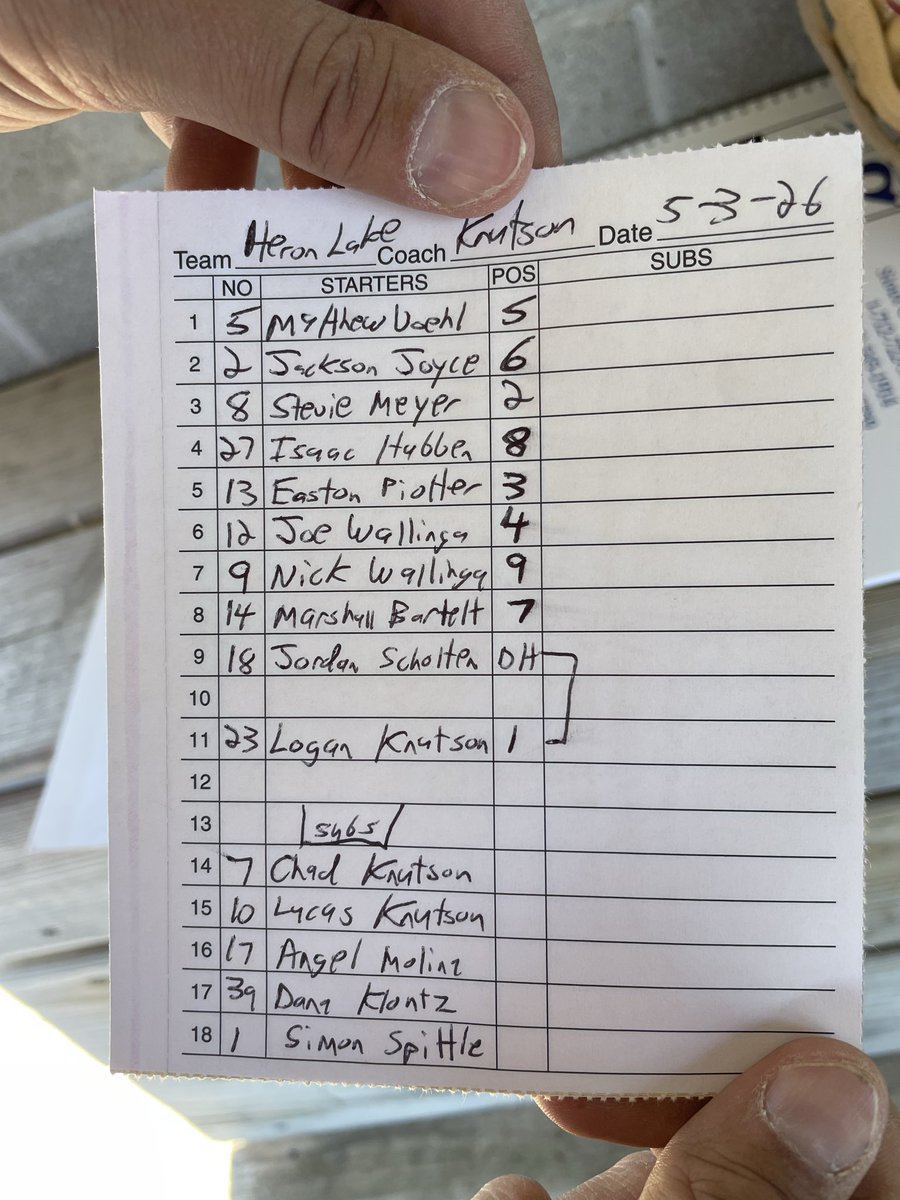 Team Heron Lake Coach Knutson Date 5-3-26
NO STARTERS POS SUBS
1 5 Matthew 5
2 2 Jackson Joyce 6
3 8 Stevie Meyer 2
4 27 Isaac Hubben 8
5 13 Easton Piotter 3
6 12 Joe Wallinga 4
7 9 Nick Wallinga 9
8 14 Marshall Bartelt 7
9 18 Jordan Scholten DH
10
11 23 Logan Knutson 1
12
13 subs
14 7 Chad Knutson
15 10 Lucas Knutson
16 17 Angel Molina
17 39 Dana Klontz
18 1 Simon Spittle